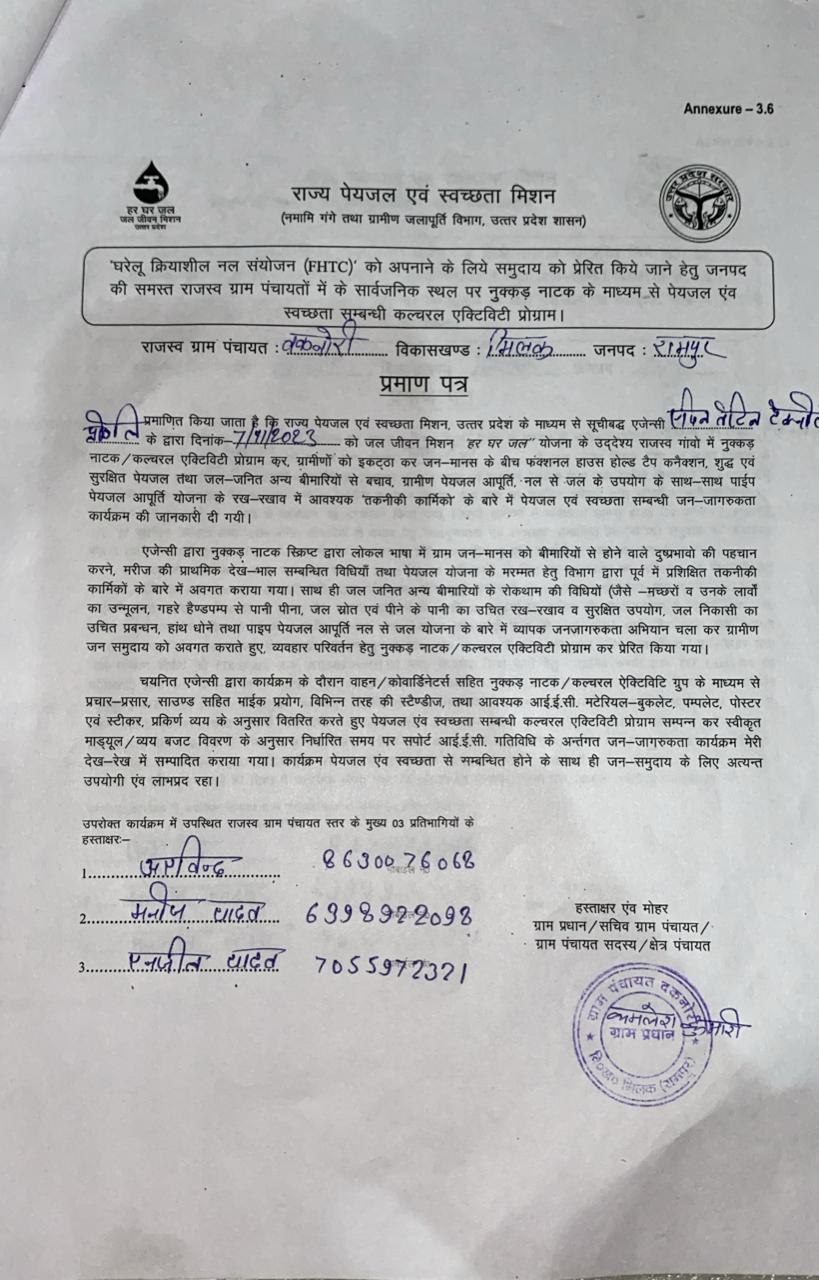 Annexure – 3.6
हर घर जल
जल जीवन मिशन
उत्तर प्रदेश
राज्य पेयजल एवं स्वच्छता मिशन
(नमामि गंगे तथा ग्रामीण जलापूर्ति विभाग, उत्तर प्रदेश शासन)
उत्तर प्रदेश सरकार
'घरेलू क्रियाशील नल संयोजन (FHTC)' को अपनाने के लिये समुदाय को प्रेरित किये जाने हेतु जनपद
की समस्त राजस्व ग्राम पंचायतों में के सार्वजनिक स्थल पर नुक्कड़ नाटक के माध्यम से पेयजल एंव
स्वच्छता सम्बन्धी कल्चरल एक्टिविटी प्रोग्राम।
राजस्व ग्राम पंचायत : दकनोरी विकासखण्ड : मिलक जनपद : रामपुर
प्रमाण पत्र
प्रमाणित किया जाता है कि राज्य पेयजल एवं स्वच्छता मिशन, उत्तर प्रदेश के माध्यम से सूचीबद्ध एजेन्सी
के द्वारा दिनांक– को जल जीवन मिशन हर घर जल" योजना के उद्देश्य राजस्व गांवो में नुक्कड़
नाटक/कल्चरल एक्टिविटी प्रोग्राम कर, ग्रामीणों को इकट्ठा कर जन–मानस के बीच फंक्शनल हाउस होल्ड टैप कनैक्शन, शुद्ध एवं
सुरक्षित पेयजल तथा जल–जनित अन्य बीमारियों से बचाव, ग्रामीण पेयजल आपूर्ति, नल से जल के उपयोग के साथ–साथ पाईप
पेयजल आपूर्ति योजना के रख–रखाव में आवश्यक 'तकनीकी कार्मिको' के बारे में पेयजल एवं स्वच्छता सम्बन्धी जन–जागरुकता
कार्यक्रम की जानकारी दी गयी।
एजेन्सी द्वारा नुक्कड़ नाटक स्क्रिप्ट द्वारा लोकल भाषा में ग्राम जन–मानस को बीमारियों से होने वाले दुष्प्रभावो की पहचान
करने, मरीज की प्राथमिक देख–भाल सम्बन्धित विधियाँ तथा पेयजल योजना के मरम्मत हेतु विभाग द्वारा पूर्व में प्रशिक्षित तकनीकी
कार्मिकों के बारे में अवगत कराया गया। साथ ही जल जनित अन्य बीमारियों के रोकथाम की विधियों (जैसे –मच्छरों व उनके लार्वो
का उन्मूलन, गहरे हैण्डपम्प से पानी पीना, जल स्रोत एवं पीने के पानी का उचित रख–रखाव व सुरक्षित उपयोग, जल निकासी का
उचित प्रबन्धन, हांथ धोने तथा पाइप पेयजल आपूर्ति नल से जल योजना के बारे में व्यापक जनजागरुकता अभियान चला कर ग्रामीण
जन समुदाय को अवगत कराते हुए, व्यवहार परिवर्तन हेतु नुक्कड़ नाटक/कल्चरल एक्टिविटी प्रोग्राम कर प्रेरित किया गया।
चयनित एजेन्सी द्वारा कार्यक्रम के दौरान वाहन/कोवार्डिनेटर्स सहित नुक्कड़ नाटक/कल्चरल ऐक्टिविटि ग्रुप के माध्यम से
प्रचार–प्रसार, साउण्ड सहित माईक प्रयोग, विभिन्न तरह की स्टैण्डीज, तथा आवश्यक आई.ई.सी. मटेरियल–बुकलेट, पम्पलेट, पोस्टर
एवं स्टीकर, प्रकिर्ण व्यय के अनुसार वितरित करते हुए पेयजल एंव स्वच्छता सम्बन्धी कल्चरल एक्टिविटी प्रोग्राम सम्पन्न कर स्वीकृत
माड्यूल/व्यय बजट विवरण के अनुसार निर्धारित समय पर सपोर्ट आई.ई.सी. गतिविधि के अर्न्तगत जन–जागरुकता कार्यक्रम मेरी
देख–रेख में सम्पादित कराया गया। कार्यक्रम पेयजल एंव स्वच्छता से सम्बन्धित होने के साथ ही जन–समुदाय के लिए अत्यन्त
उपयोगी एंव लाभप्रद रहा।
उपरोक्त कार्यक्रम में उपस्थित राजस्व ग्राम पंचायत स्तर के मुख्य 03 प्रतिभागियों के
हस्ताक्षरः–
1. अरविन्द 8630076068
2. मनीष यादव 6398922098
3. यादव 7055972321
हस्ताक्षर एंव मोहर
ग्राम प्रधान/सचिव ग्राम पंचायत/
ग्राम पंचायत सदस्य/क्षेत्र पंचायत
ग्राम पंचायत दकनोरी
कमलेश कुमारी
ग्राम प्रधान
वि०ख० मिलक (रामपुर)